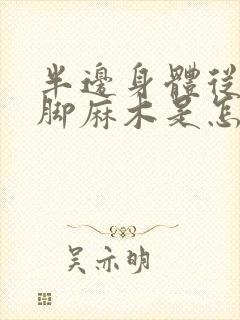 半邊身體從
腳麻木是怎
吴亦明